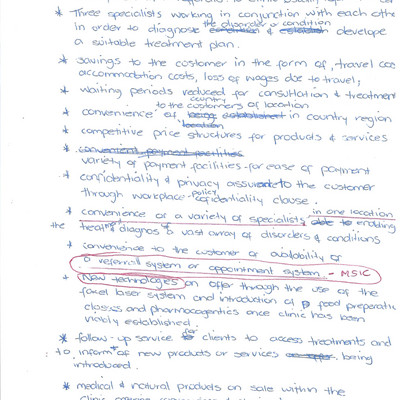 * Three specialists working in conjunction with each othe
the disorder or condition
in order to diagnose condition & establish develope
a suitable treatment plan.
* savings to the customer in the form of, travel cos
accommodation costs, loss of wages due to travel,
* waiting periods reduced for consultation & treatment
country
to the customers of location
* convenience of being established in country region
location
* competitive price structures for products & services
* convenient payment facilities
variety of payment facilities for ease of payment
* confidentiality & privacy assurance to the customer
through workplace policy confidentiality clause.
* convenience or a variety of specialists in one location
able to enabling
the treat diagnos a vast array of disorders & conditions
* convenience to the customer or availability of
a referral system or appointment system - MSIC
* New technologies on offer through the use of the
facel laser system and introduction of food preparatic
classes and pharmacogentics once clinic has been
viably established.
* follow-up service for clients to access treatments and
to inform of new products or services being
introduced.
* medical & natural products on sale within the